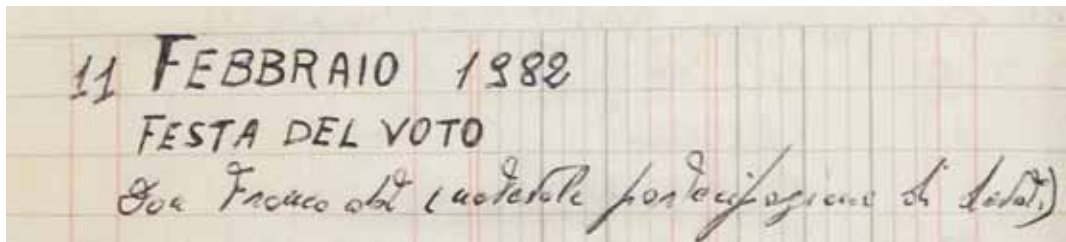 11 FEBBRAIO 1982
FESTA DEL VOTO
Don Franco (notevole partecipazione di)